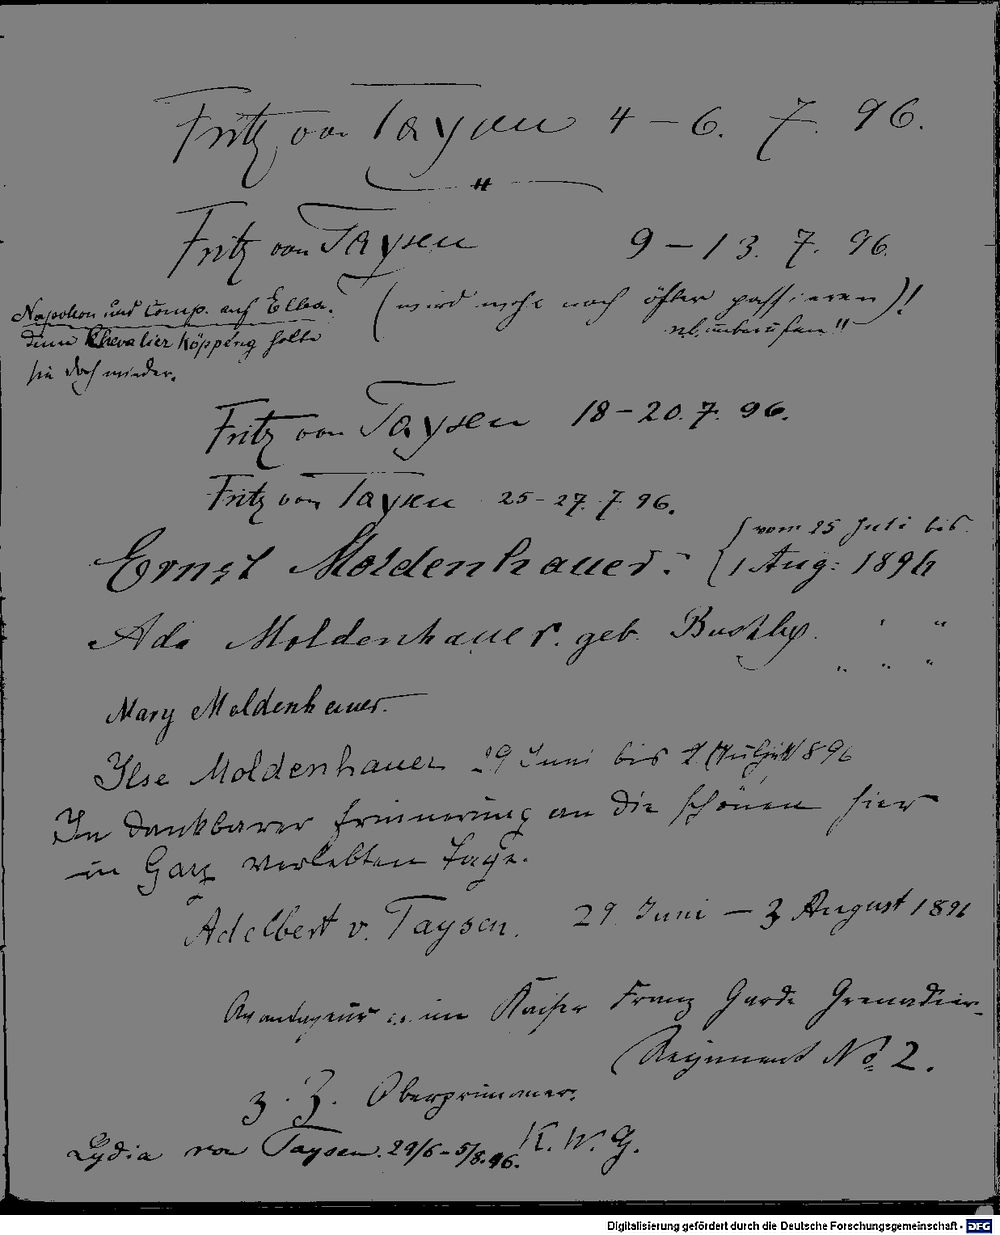 Fritz von Taysen 4 – 6. 7. 96.
Fritz von Taysen 9 – 13. 7. 96.
(wird wohl noch öfter passieren)!
unberufen!!
Napoleon und Comp. auf Elba.
denn Chevalier Köppéng holte
sie doch wieder.
Fritz von Taysen 18 – 20. 7. 96.
Fritz von Taysen 25 – 27. 7. 96.
Ernst Moldenhauer. vom 25 Juli bis
1 Aug: 1896
Ada Moldenhauer. geb. " "
Mary Moldenhauer. " " "
Ilse Moldenhauer 29 Juni bis 1896
In dankbarer Erinnerung an die schönen hier
in Garz verlebten Tage.
Adelbert v. Taysen. 29. Juni – 3 August 1896
Avantageur im Kaiser Franz Garde Grenadier-
Regiment No 2.
z. Z. Oberprimaner.
K. W. G.
Lydia von Taysen. 29/6 – 5/8. 96.
Digitalisierung gefördert durch die Deutsche Forschungsgemeinschaft - DFG